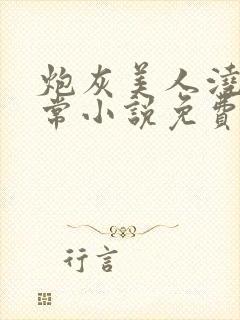 炮灰美人澆
常小説免費
行言